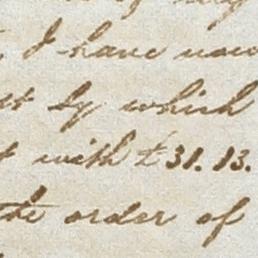 I have now
by which
with £31.13.
the order of